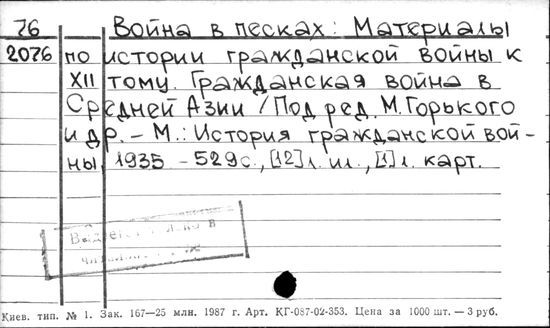 76 Война в песках: Материалы
2076 по истории гражданской войны к
XII тому. Гражданская война в
Средней Азии / Под ред. М. Горького
и др. – М.: История гражданской вой-
ны, 1935 – 529с., [12] л. ил., [1] л. карт.
в
Киев. тип. № 1. Зак. 167—25 млн. 1987 г. Арт. КГ-087-02-353. Цена за 1000 шт. — 3 руб.